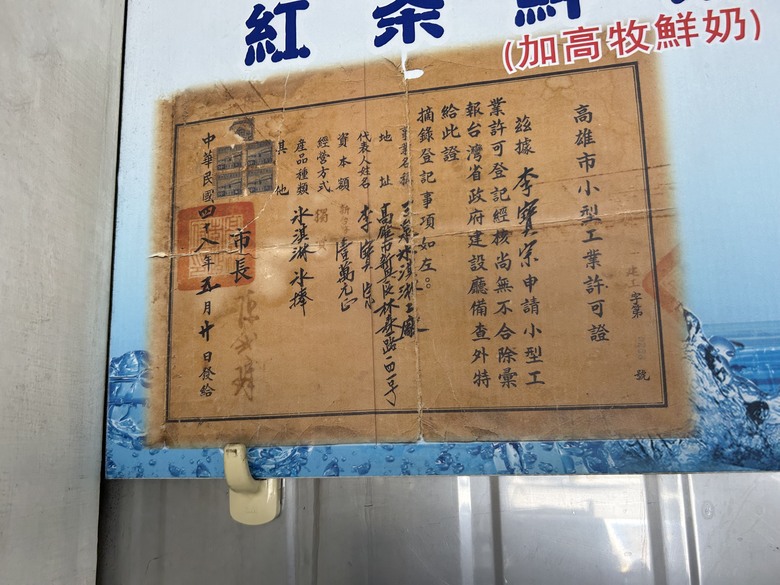 紅茶鮮
(加高牧鮮奶)
高雄市小型工業許可證
建工字第 號
茲據李寶宗申請小型工
業許可登記經核尚無不合除彙
報台灣省政府建設廳備查外特
給此證
摘錄登記事項如左。
事業名稱 冰淇淋工廠
地址 高雄市新興區林森路一四二号
代表人姓名 李寶宗
資本額 新台幣壹萬元正
經營方式 獨資
產品種類 冰淇淋 冰棒
其他
市長
中華民國四十八年五月廿日發給